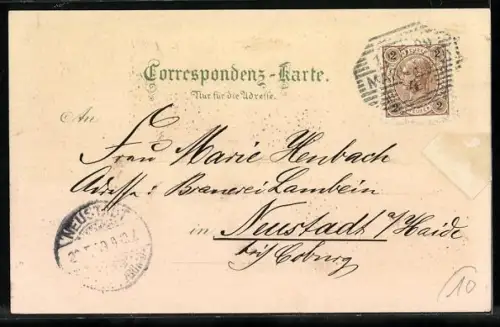 Correspondenz-Karte.
Nur für die Adresse.
An
Frau Marie Henbach
Adresse: Brauerei Lambein
in Neustadt a/Haide
bei Coburg
NEUSTADT
2
2
10